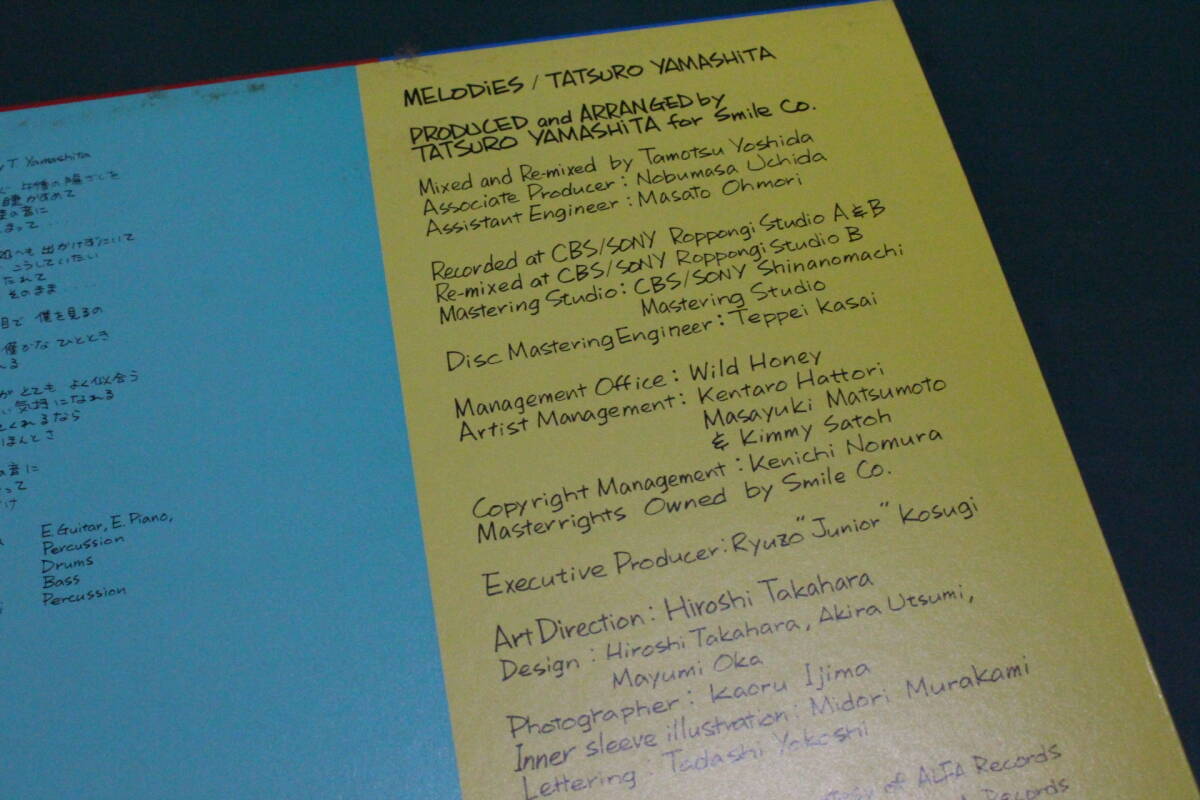 T Yamashita
処へも 出かけずにいて
こうしていたい
そのまま
目で 僕を見るの
僅かな ひととき
がとても よく似合う
い気持になれる
くれるなら
ほんとさ
の音に
って
E. Guitar, E. Piano,
Percussion
Drums
Bass
Percussion
MELODiES / TATSURO YAMASHiTA
PRODUCED and ARRANGED by
TATSURO YAMASHiTA for Smile Co.
Mixed and Re-mixed by Tamotsu Yoshida
Associate Producer : Nobumasa Uchida
Assistant Engineer : Masato Ohmori
Recorded at CBS/SONY Roppongi Studio A & B
Re-mixed at CBS/SONY Roppongi Studio B
Mastering Studio : CBS/SONY Shinanomachi
Mastering Studio
Disc Mastering Engineer : Teppei Kasai
Management Office : Wild Honey
Artist Management : Kentaro Hattori
Masayuki Matsumoto
& Kimmy Satoh
Copyright Management : Kenichi Nomura
Masterrights Owned by Smile Co.
Executive Producer : Ryuzo "Junior" Kosugi
Art Direction : Hiroshi Takahara
Design : Hiroshi Takahara, Akira Utsumi,
Mayumi Oka
Photographer : Kaoru Ijima
Inner sleeve illustration : Midori Murakami
Lettering : Tadashi Yokoshi
of ALFA Records
Records